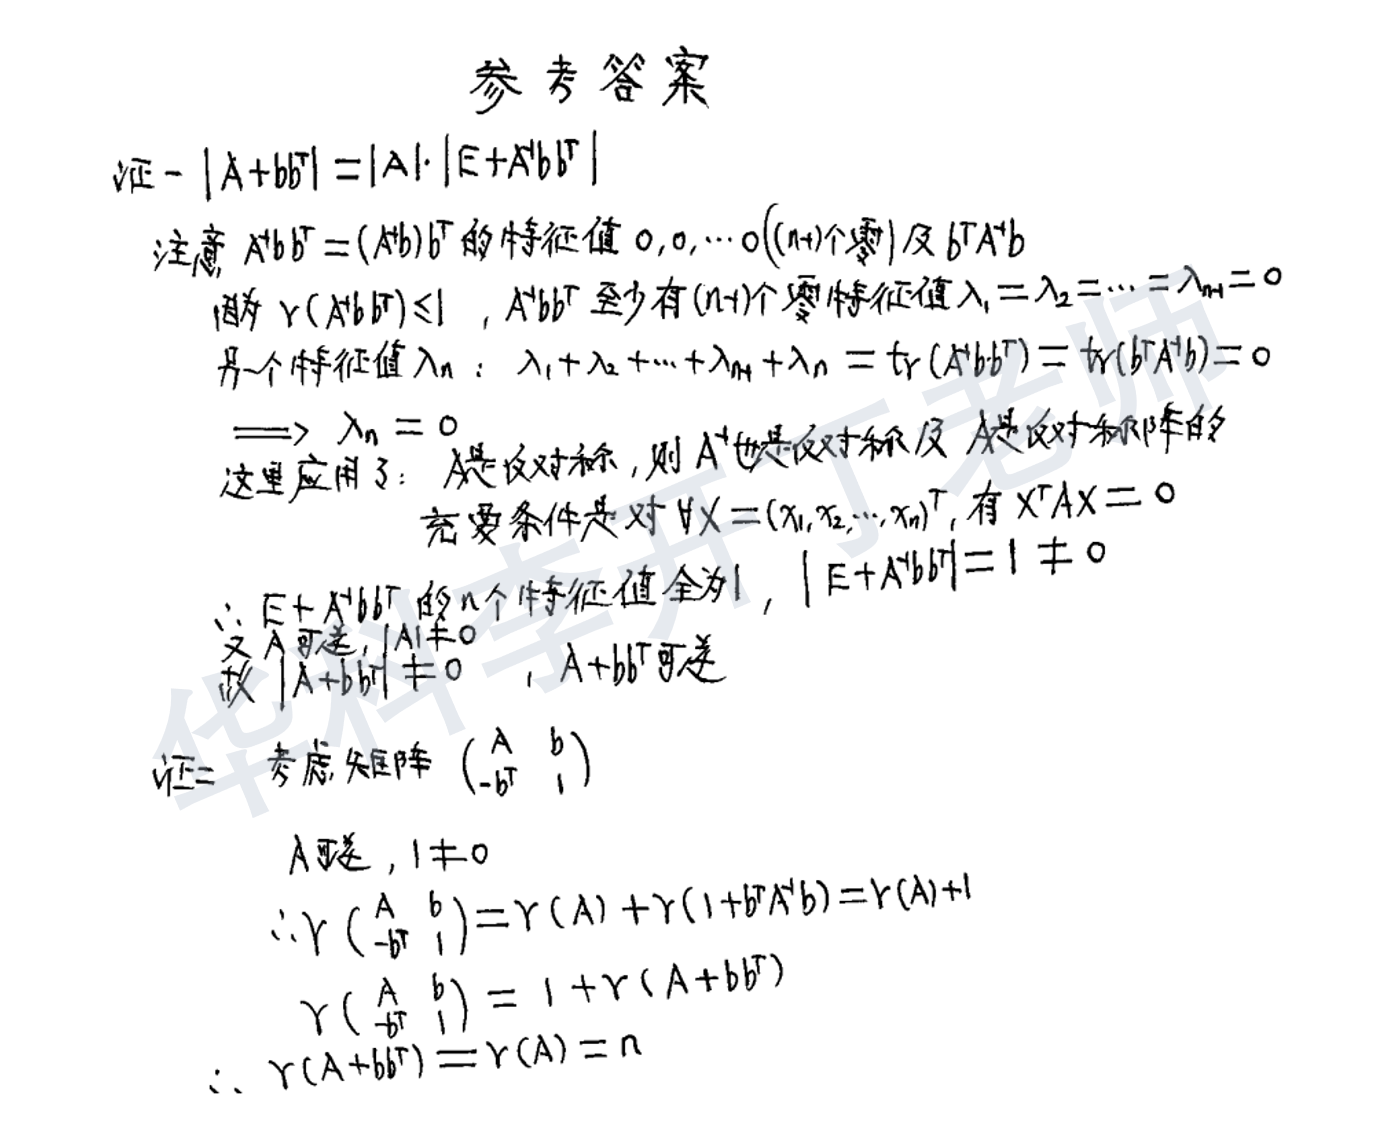 参考答案
证一 |A+bbᵀ|=|A|·|E+A⁻¹bbᵀ|
注意 A⁻¹bbᵀ=(A⁻¹b)bᵀ的特征值 0,0,…0((n-1)个零)及bᵀA⁻¹b
因为 r(A⁻¹bbᵀ)≤1 , A⁻¹bbᵀ 至少有(n-1)个零特征值λ₁=λ₂=…=λₙ₋₁=0
另一个特征值λₙ: λ₁+λ₂+…+λₙ₋₁+λₙ=tr(A⁻¹bbᵀ)=tr(bᵀA⁻¹b)=0
⟹ λₙ=0
这里应用了: A是反对称,则A⁻¹也是反对称及 A是反对称阵的
充要条件是对∀X=(x₁,x₂,…,xₙ)ᵀ,有XᵀAX=0
∴ E+A⁻¹bbᵀ的n个特征值全为1, |E+A⁻¹bbᵀ|=1≠0
又A可逆,|A|≠0
故 |A+bbᵀ|≠0 , A+bbᵀ可逆
证二 考虑矩阵 (A b
-bᵀ 1)
A可逆,1≠0
∴r(A b
-bᵀ 1)=r(A)+r(1+bᵀA⁻¹b)=r(A)+1
r(A b
-bᵀ 1)=1+r(A+bbᵀ)
∴ r(A+bbᵀ)=r(A)=n
华科李开丁老师